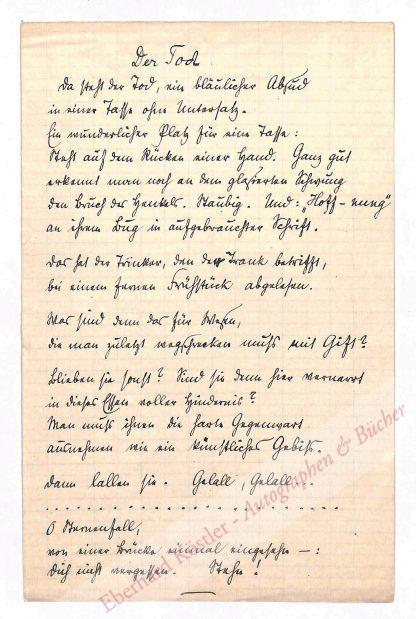 Der Tod
Da steht der Tod, ein bläulicher Absud
in einer Tasse ohne Untersatz.
Ein wunderlicher Platz für eine Tasse:
steht auf dem Rücken einer Hand. Ganz gut
erkennt man noch an dem glasierten Schwung
den Bruch des Henkels. Staubig. Und: „Hoff-nung"
an ihrem Bug in aufgebrauchter Schrift.
Das hat der Trinker, den der Trank betrifft,
bei einem fernen Frühstück abgelesen.
Was sind denn das für Wesen,
die man zuletzt wegschrecken muß mit Gift?
Blieben sie sonst? Sind sie denn hier vernarrt
in dieses Essen voller Hindernis?
Man muß ihnen die harte Gegenwart
ausnehmen wie ein künstliches Gebiß.
Dann lallen sie. Gelall, Gelall..
. . . . . . . . . . . . . . . . . . . . . .
O Sternenfall,
von einer Brücke einmal eingesehn —:
Dich nicht vergessen. Stehn!
Eberhard Köstler - Autographen & Bücher